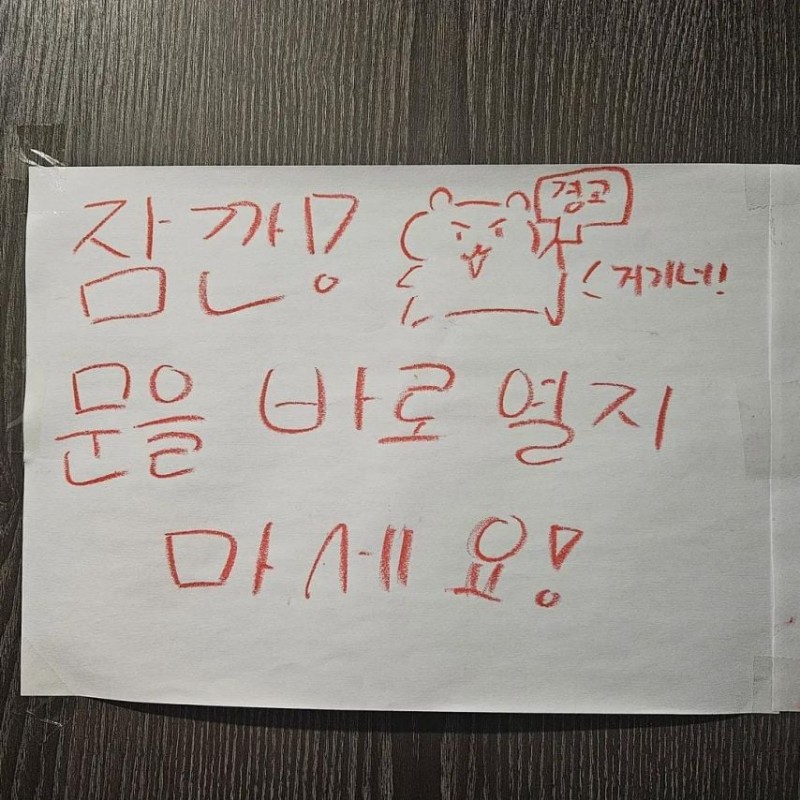 잠깐!
경고
거기 너!
문을 바로 열지
마세요!